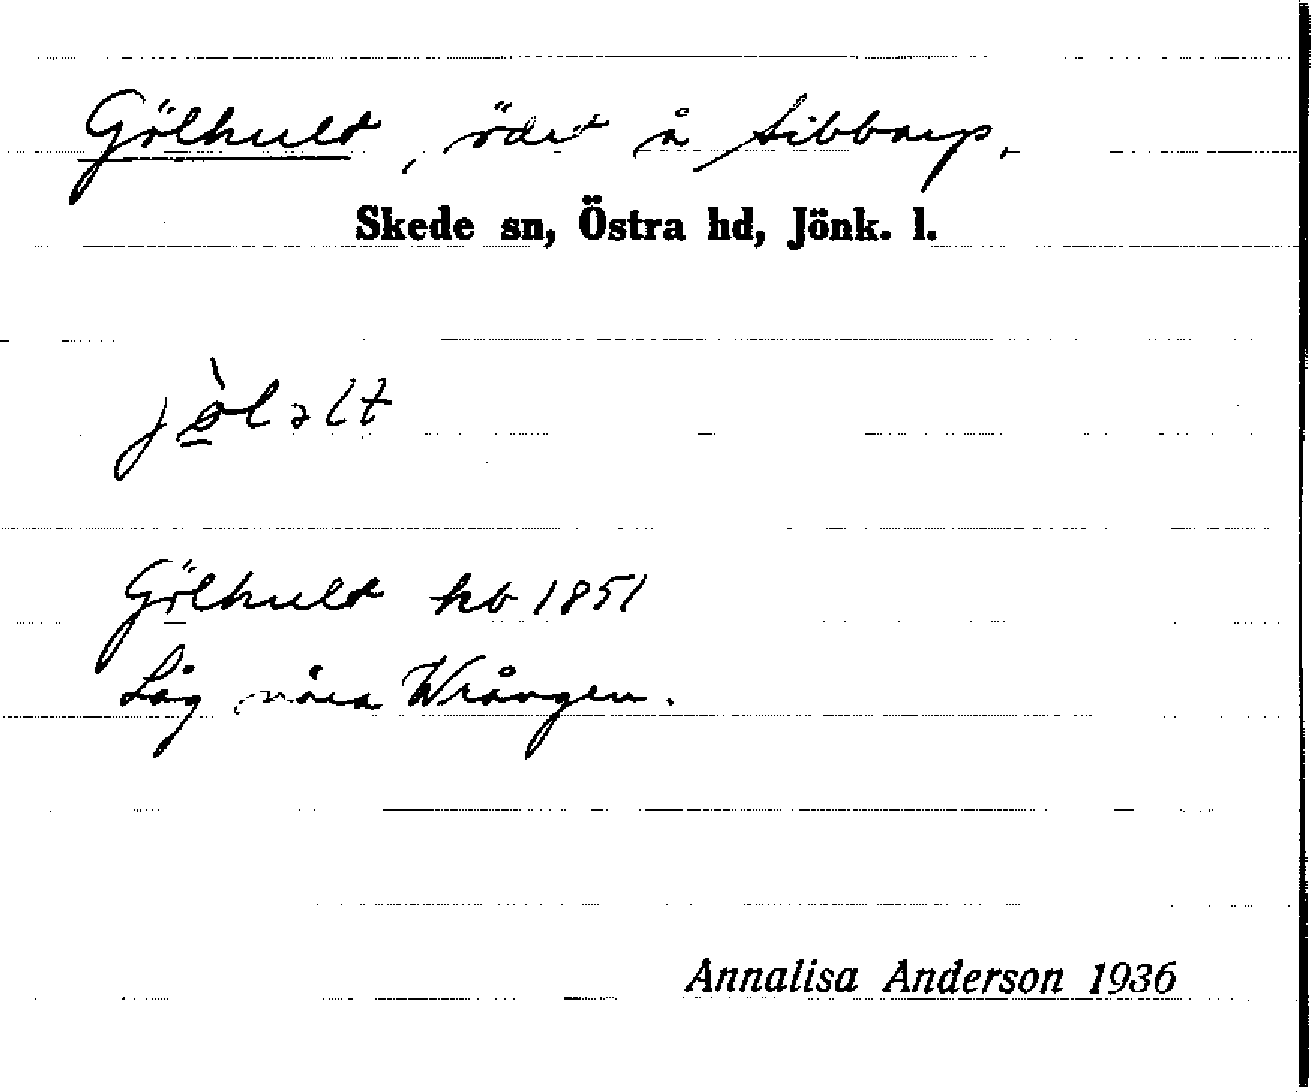 Gölhult, ödet å Sibbarp.
Skede sn, Östra hd, Jönk. l.
jø�
̀l ə lt
Gölhult hb 1851
Låg nära Wrången.
Annalisa Anderson 1936